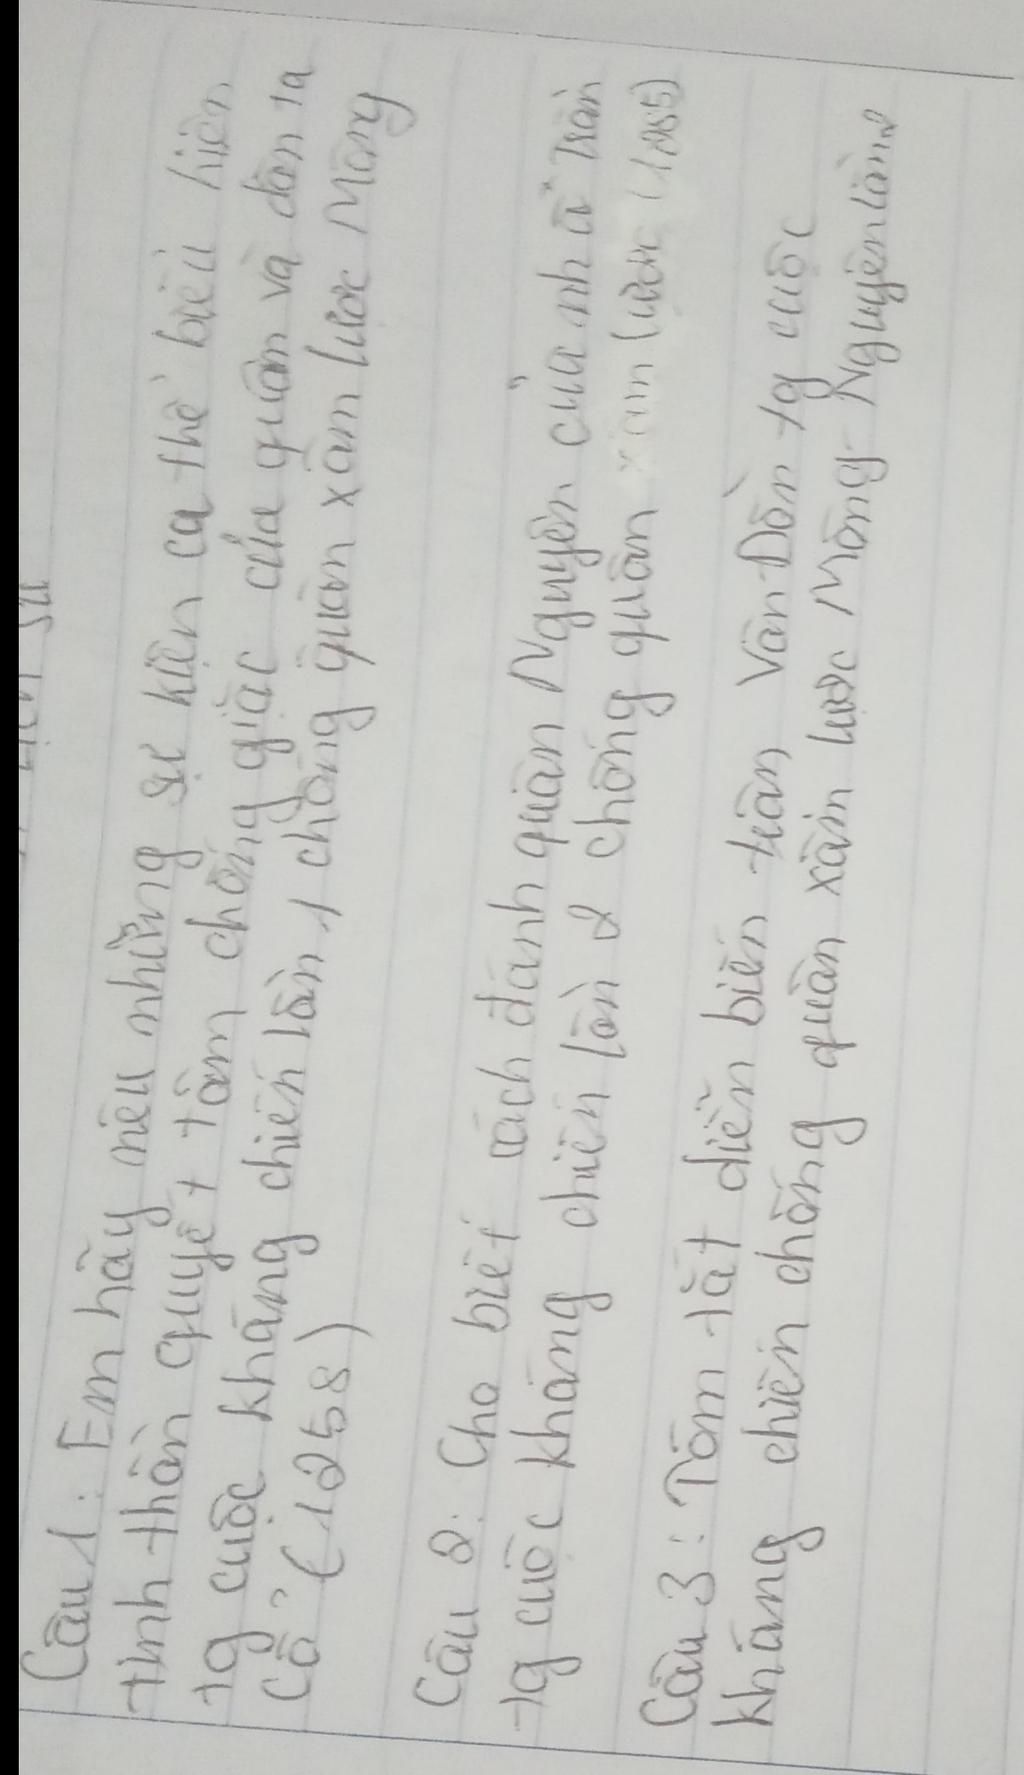 Câu 1: Em hãy nêu những sự kiện cụ thể biểu hiện
tinh thần quyết tâm chống giặc của quân và dân ta
tg cuộc kháng chiến lần 1 chống quân xâm lược Mông
Cổ (1258)
Câu 2: Cho biết cách đánh quân Nguyên của nhà Trần
tg cuộc kháng chiến lần 2 chống quân xâm lược
Câu 3: Tóm tắt diễn biến trận Vân Đồn tg cuộc
kháng chiến chống quân xâm lược Mông-Nguyên lần 2